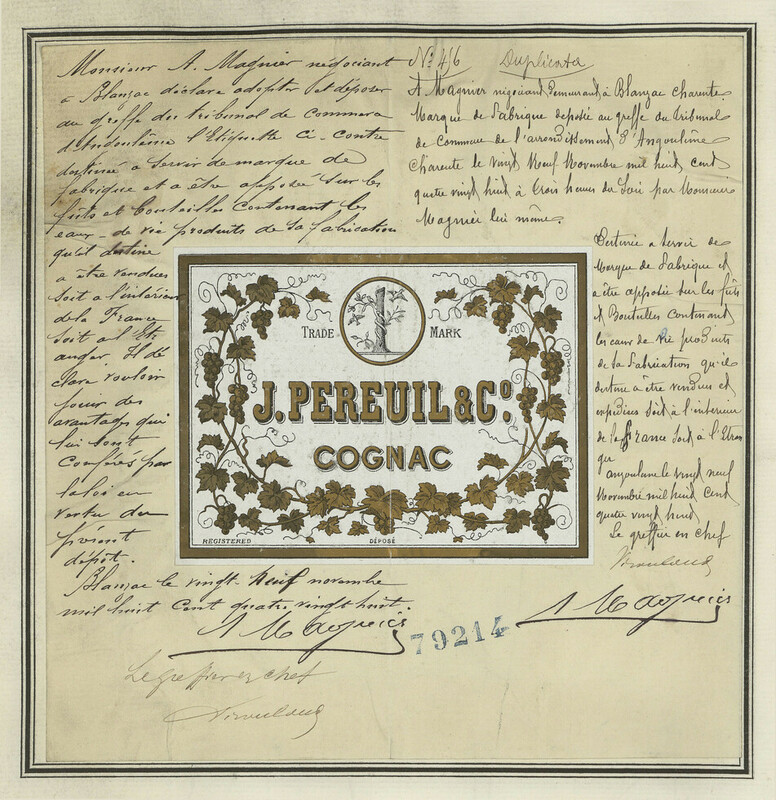 Monsieur A. Magnier négociant
a Blanzac déclare adopter et déposer
au greffe du tribunal de Commerce
d'Angoulême l'Etiquette ci-contre
destinée a servir de marque de
fabrique et a être apposée sur les
fûts et bouteilles contenant les
eaux-de-vie produits de sa fabrication
qu'il destine
a être vendues
soit a l'intérieur
de la France
soit a l'Etr
anger. Il dé
clare vouloir
jouir des
avantages qui
lui sont
Conférés par
la loi en
vertu du
présent
dépôt.
Blanzac le vingt Neuf novembre
mil huit cent quatre vingt huit.
A Magnier
Le greffier en chef
No 46 Duplicata
A Magnier négociant demeurant à Blanzac charente.
Marque de Fabrique déposée au greffe du Tribunal
de Commerce de l'arrondissement d'Angoulême
Charente le vingt Neuf Novembre mil huit cent
quatre vingt huit à trois heures du soir par Monsieur
Magnier lui même.
Destinée a servir de
Marque de Fabrique et
a être apposée sur les fûts
et Bouteilles contenant
les eaux de vie produits
de sa Fabrication qu'il
destine a être vendues et
expédiées soit à l'intérieur
de la France soit à l'Etran
ger
angoulême le vingt neuf
Novembre mil huit cent
quatre vingt huit
Le greffier en chef
A Magnier
TRADE MARK
J. PEREUIL & Co.
COGNAC
REGISTERED DÉPOSÉ
79214